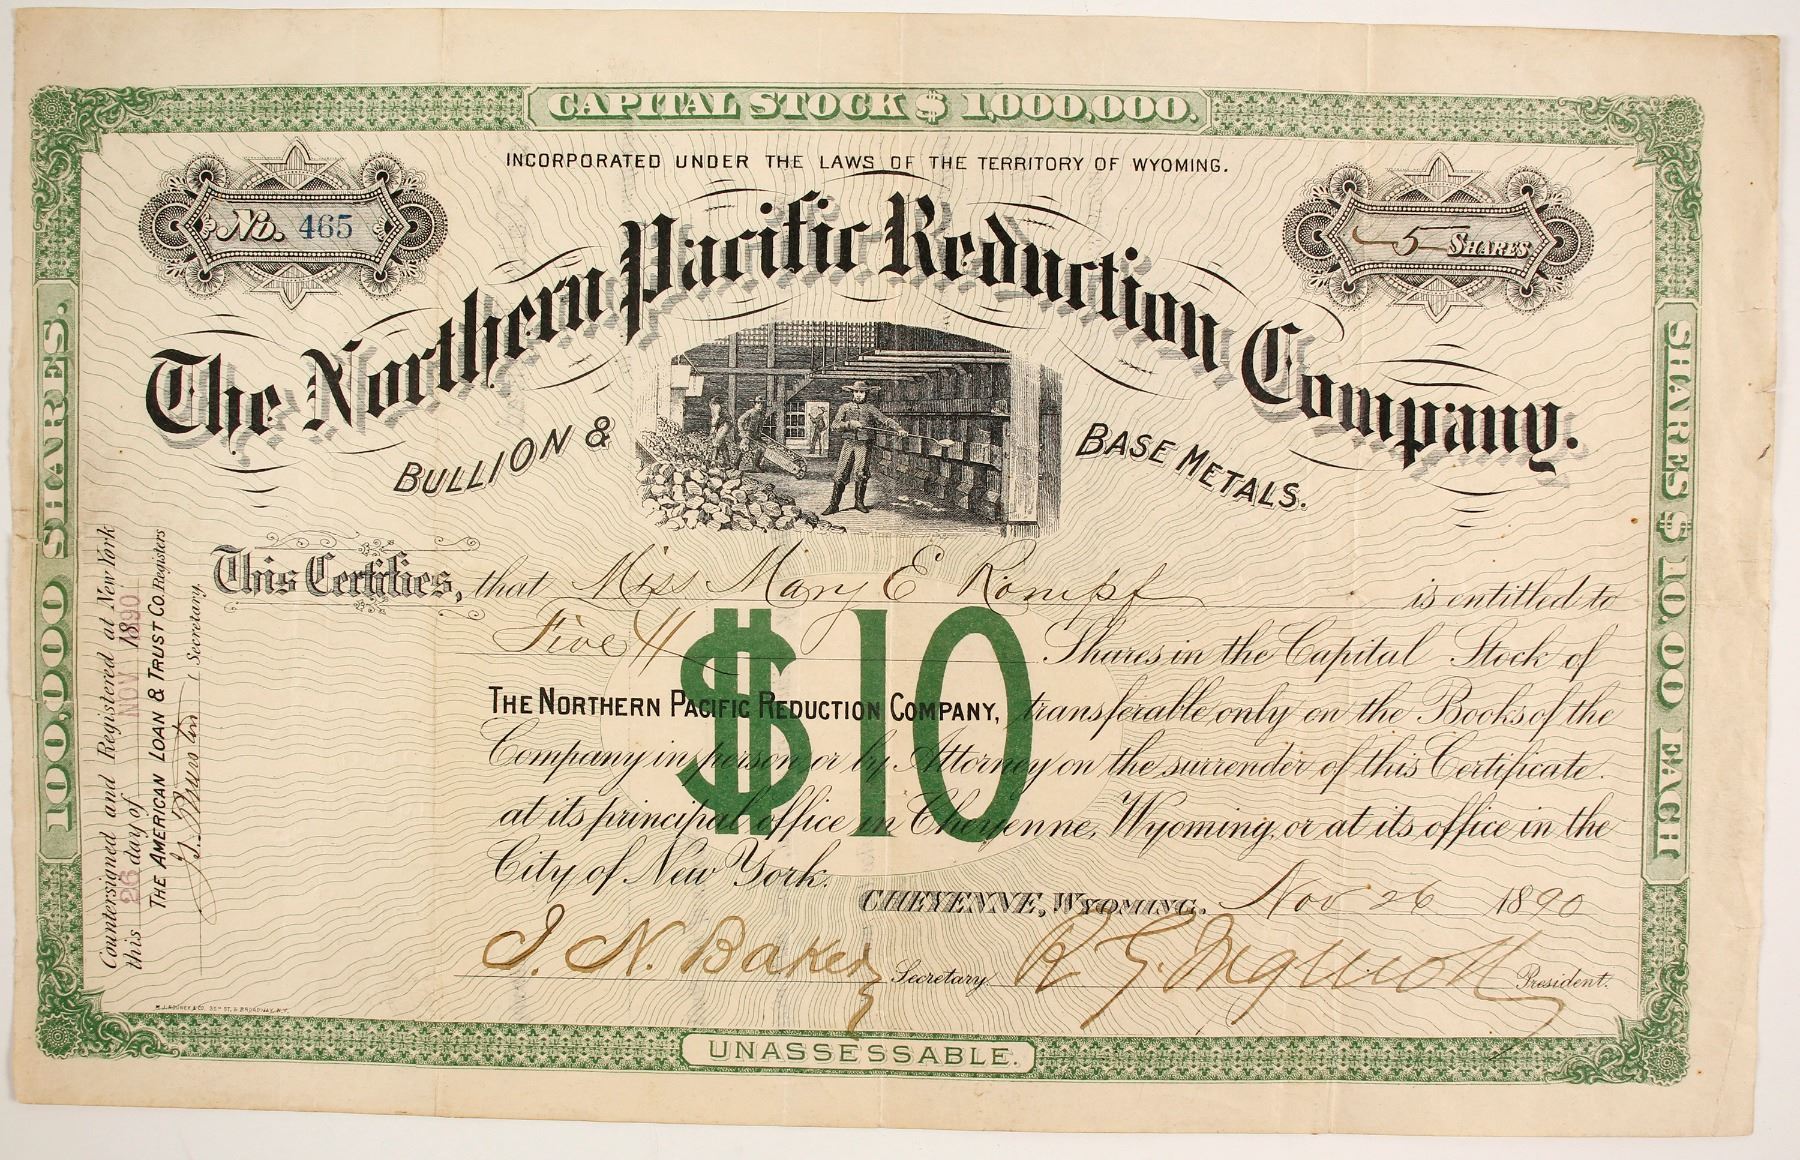 CAPITAL STOCK $ 1,000,000.
INCORPORATED UNDER THE LAWS OF THE TERRITORY OF WYOMING.
No. 465
5 SHARES
The Northern Pacific Reduction Company.
BULLION & BASE METALS.
100,000 SHARES.
SHARES $10.00 EACH
This Certifies, that Miss Mary E Rompf is entitled to
Five // Shares in the Capital Stock of
$10
THE NORTHERN PACIFIC REDUCTION COMPANY, transferable only on the Books of the
Company in person or by Attorney on the surrender of this Certificate.
at its principal office in Cheyenne, Wyoming, or at its office in the
City of New York.
CHEYENNE, WYOMING. Nov 26 1890
J. N. Baker Secretary. R G. Ingersoll President.
Countersigned and Registered at New York
this 26 day of NOV 1890
THE AMERICAN LOAN & TRUST CO. Registers
Thurston Secretary.
35TH ST. & BROADWAY, N.Y.
UNASSESSABLE.